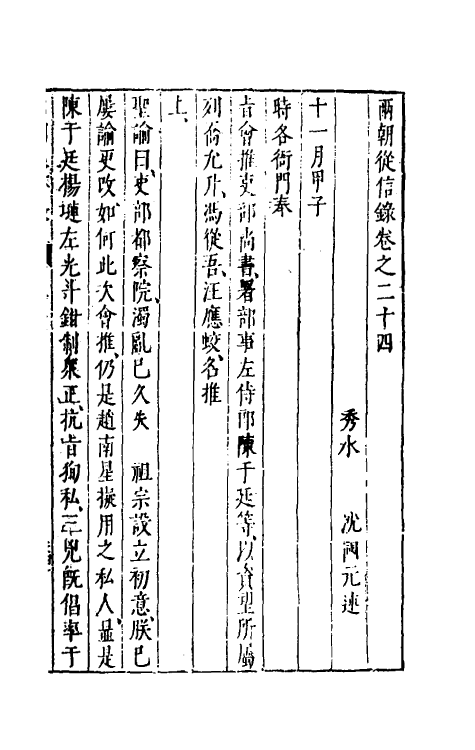 兩朝從信錄卷之二十四
秀水 沈國元述
十一月甲子
時各衙門奉
旨會推吏部尚書、署部事左侍郎陳于廷等、以資望所屬
列喬允升、馮從吾、汪應蛟、名推
上、
聖諭曰、吏部都察院、濁亂已久失 祖宗設立初意、朕已
屡諭更改、如何此次會推、仍是趙南星擬用之私人、显是
陳于廷楊漣左光斗鉗制衆正、抗旨狥私、三兇旣倡率于